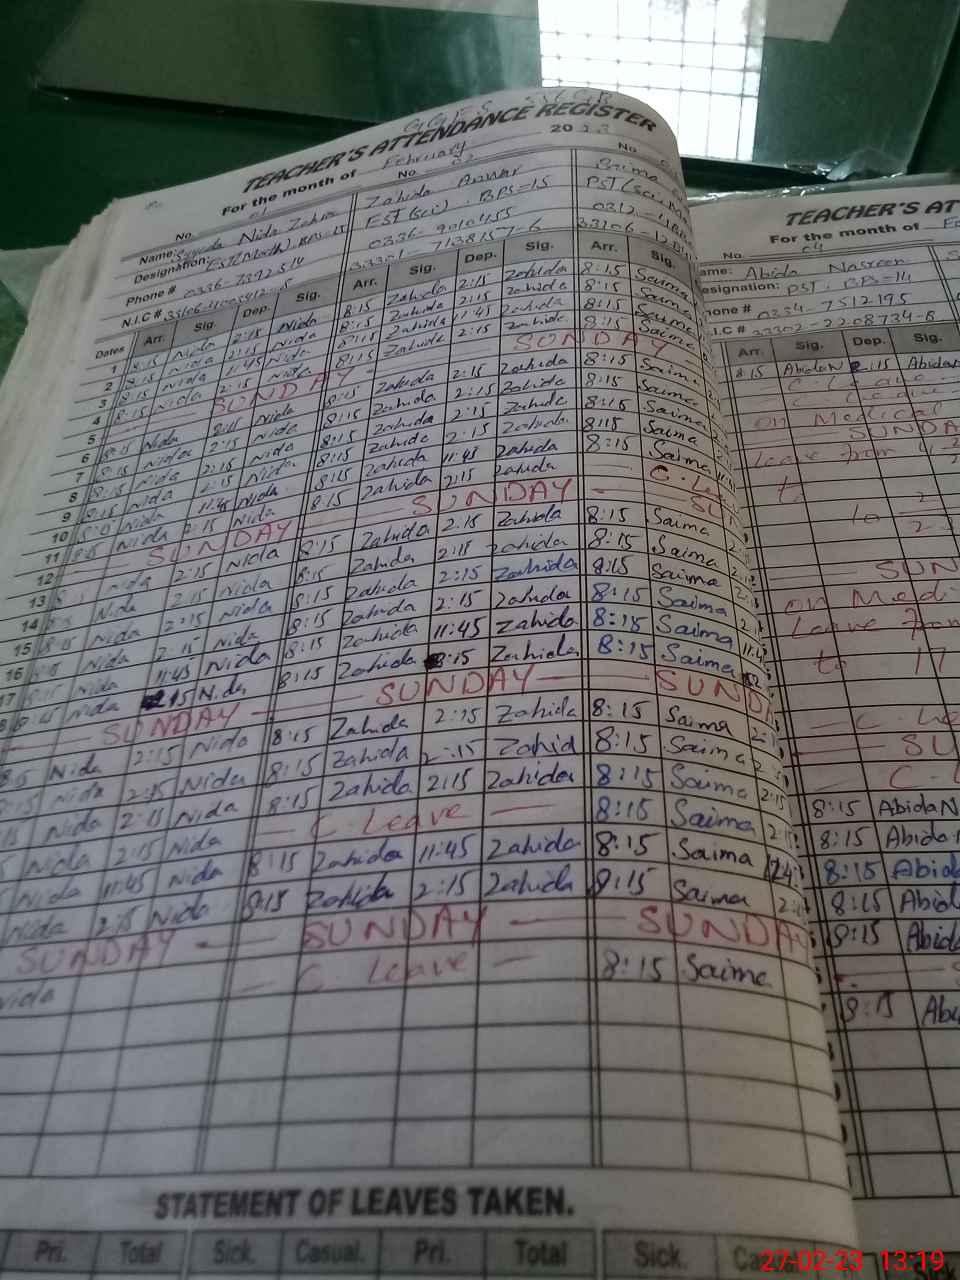 TEACHER'S ATTENDANCE REGISTER
For the month of February 2023
No. 01 No. 02 No.
Name: Syeda Nida Zahra Zahida Anwar Saima
Designation: EST(Math) BPS=15 EST(sci). BPS=15 PST(sci.
Phone # 0336-7392514 0336- 0312-
N.I.C # 33301- 7138157-6 33106-
Dates Arr. Sig. Dep. Sig. Arr. Sig. Dep. Sig. Arr. Sig.
1 8:15 Nida 2:15 Nida 8:15 Zahida 2:15 Zahida 8:15 Saima
2 8:15 Nida 2:15 Nida 8:15 Zahida 2:15 Zahida 8:15 Saima
3 8:15 Nida 11:45 Nida 8:15 Zahida 11:45 Zahida 8:15 Saima
4 8:15 Nida 2:15 Nida 8:15 Zahida 2:15 Zahida 8:15 Saima
5 SUNDAY SUNDAY
6 8:15 Nida 2:15 Nida 8:15 Zahida 2:15 Zahida 8:15 Saima
7 8:15 Nida 2:15 Nida 8:15 Zahida 2:15 Zahida 8:15 Saima
8 8:15 Nida 2:15 Nida 8:15 Zahida 2:15 Zahida 8:15 Saima
9 8:15 Nida 2:15 Nida 8:15 Zahida 2:15 Zahida 8:15 Saima
10 Nida 11:45 Nida 8:15 Zahida 11:45 Zahida 8:15 Saima
11 8:15 Nida 2:15 Nida 8:15 Zahida 2:15 Zahida C. Lea
12 SUNDAY SUNDAY SUN
13 Nida 2:15 Nida 8:15 Zahida 2:15 Zahida 8:15 Saima
14 Nida 2:15 Nida 8:15 Zahida 2:15 Zahida 8:15 Saima
15 8:15 Nida 2:15 Nida 8:15 Zahida 2:15 Zahida 8:15 Saima
16 Nida 2:15 Nida 8:15 Zahida 2:15 Zahida 8:15 Saima
17 8:15 Nida 11:45 Nida 8:15 Zahida 11:45 Zahida 8:15 Saima
8 8:15 Nida 2:15 Nida 8:15 Zahida 2:15 Zahida 8:15 Saima
SUNDAY SUNDAY SUNDA
Nida 2:15 Nida 8:15 Zahida 2:15 Zahida 8:15 Saima
Nida 2:15 Nida 8:15 Zahida 2:15 Zahid 8:15 Saima 2:15
Nida 2:15 Nida 8:15 Zahida 2:15 Zahida 8:15 Saima 2:15
Nida 2:15 Nida C. Leave 8:15 Saima
Nida 11:45 Nida 8:15 Zahida 11:45 Zahida 8:15 Saima
Nida 2:15 Nida 8:15 Zahida 2:15 Zahida 8:15 Saima
SUNDAY SUNDAY SUNDAY
Nida C. Leave 8:15 Saima
STATEMENT OF LEAVES TAKEN.
Pri. Total Sick. Casual. Pri. Total Sick. Ca
TEACHER'S AT
For the month of Fe
No. 04
ame: Abida Nasreen
esignation: PST. BPS=14
hone # 0334-7512195
.I.C # 33302-2208734-8
Arr. Sig. Dep. Sig.
8:15 AbidaN 2:15 Abida
C. Leave
C. Leave
on Medical
SUNDA
Leave from
to
to
SUN
on Medi
Leave From
to 17
C. Le
SU
C. L
8:15 AbidaN
8:15 Abida
8:15 Abida
8:15 Abid
8:15 Abida
S
8:15 Abi
27-02-23 13:19